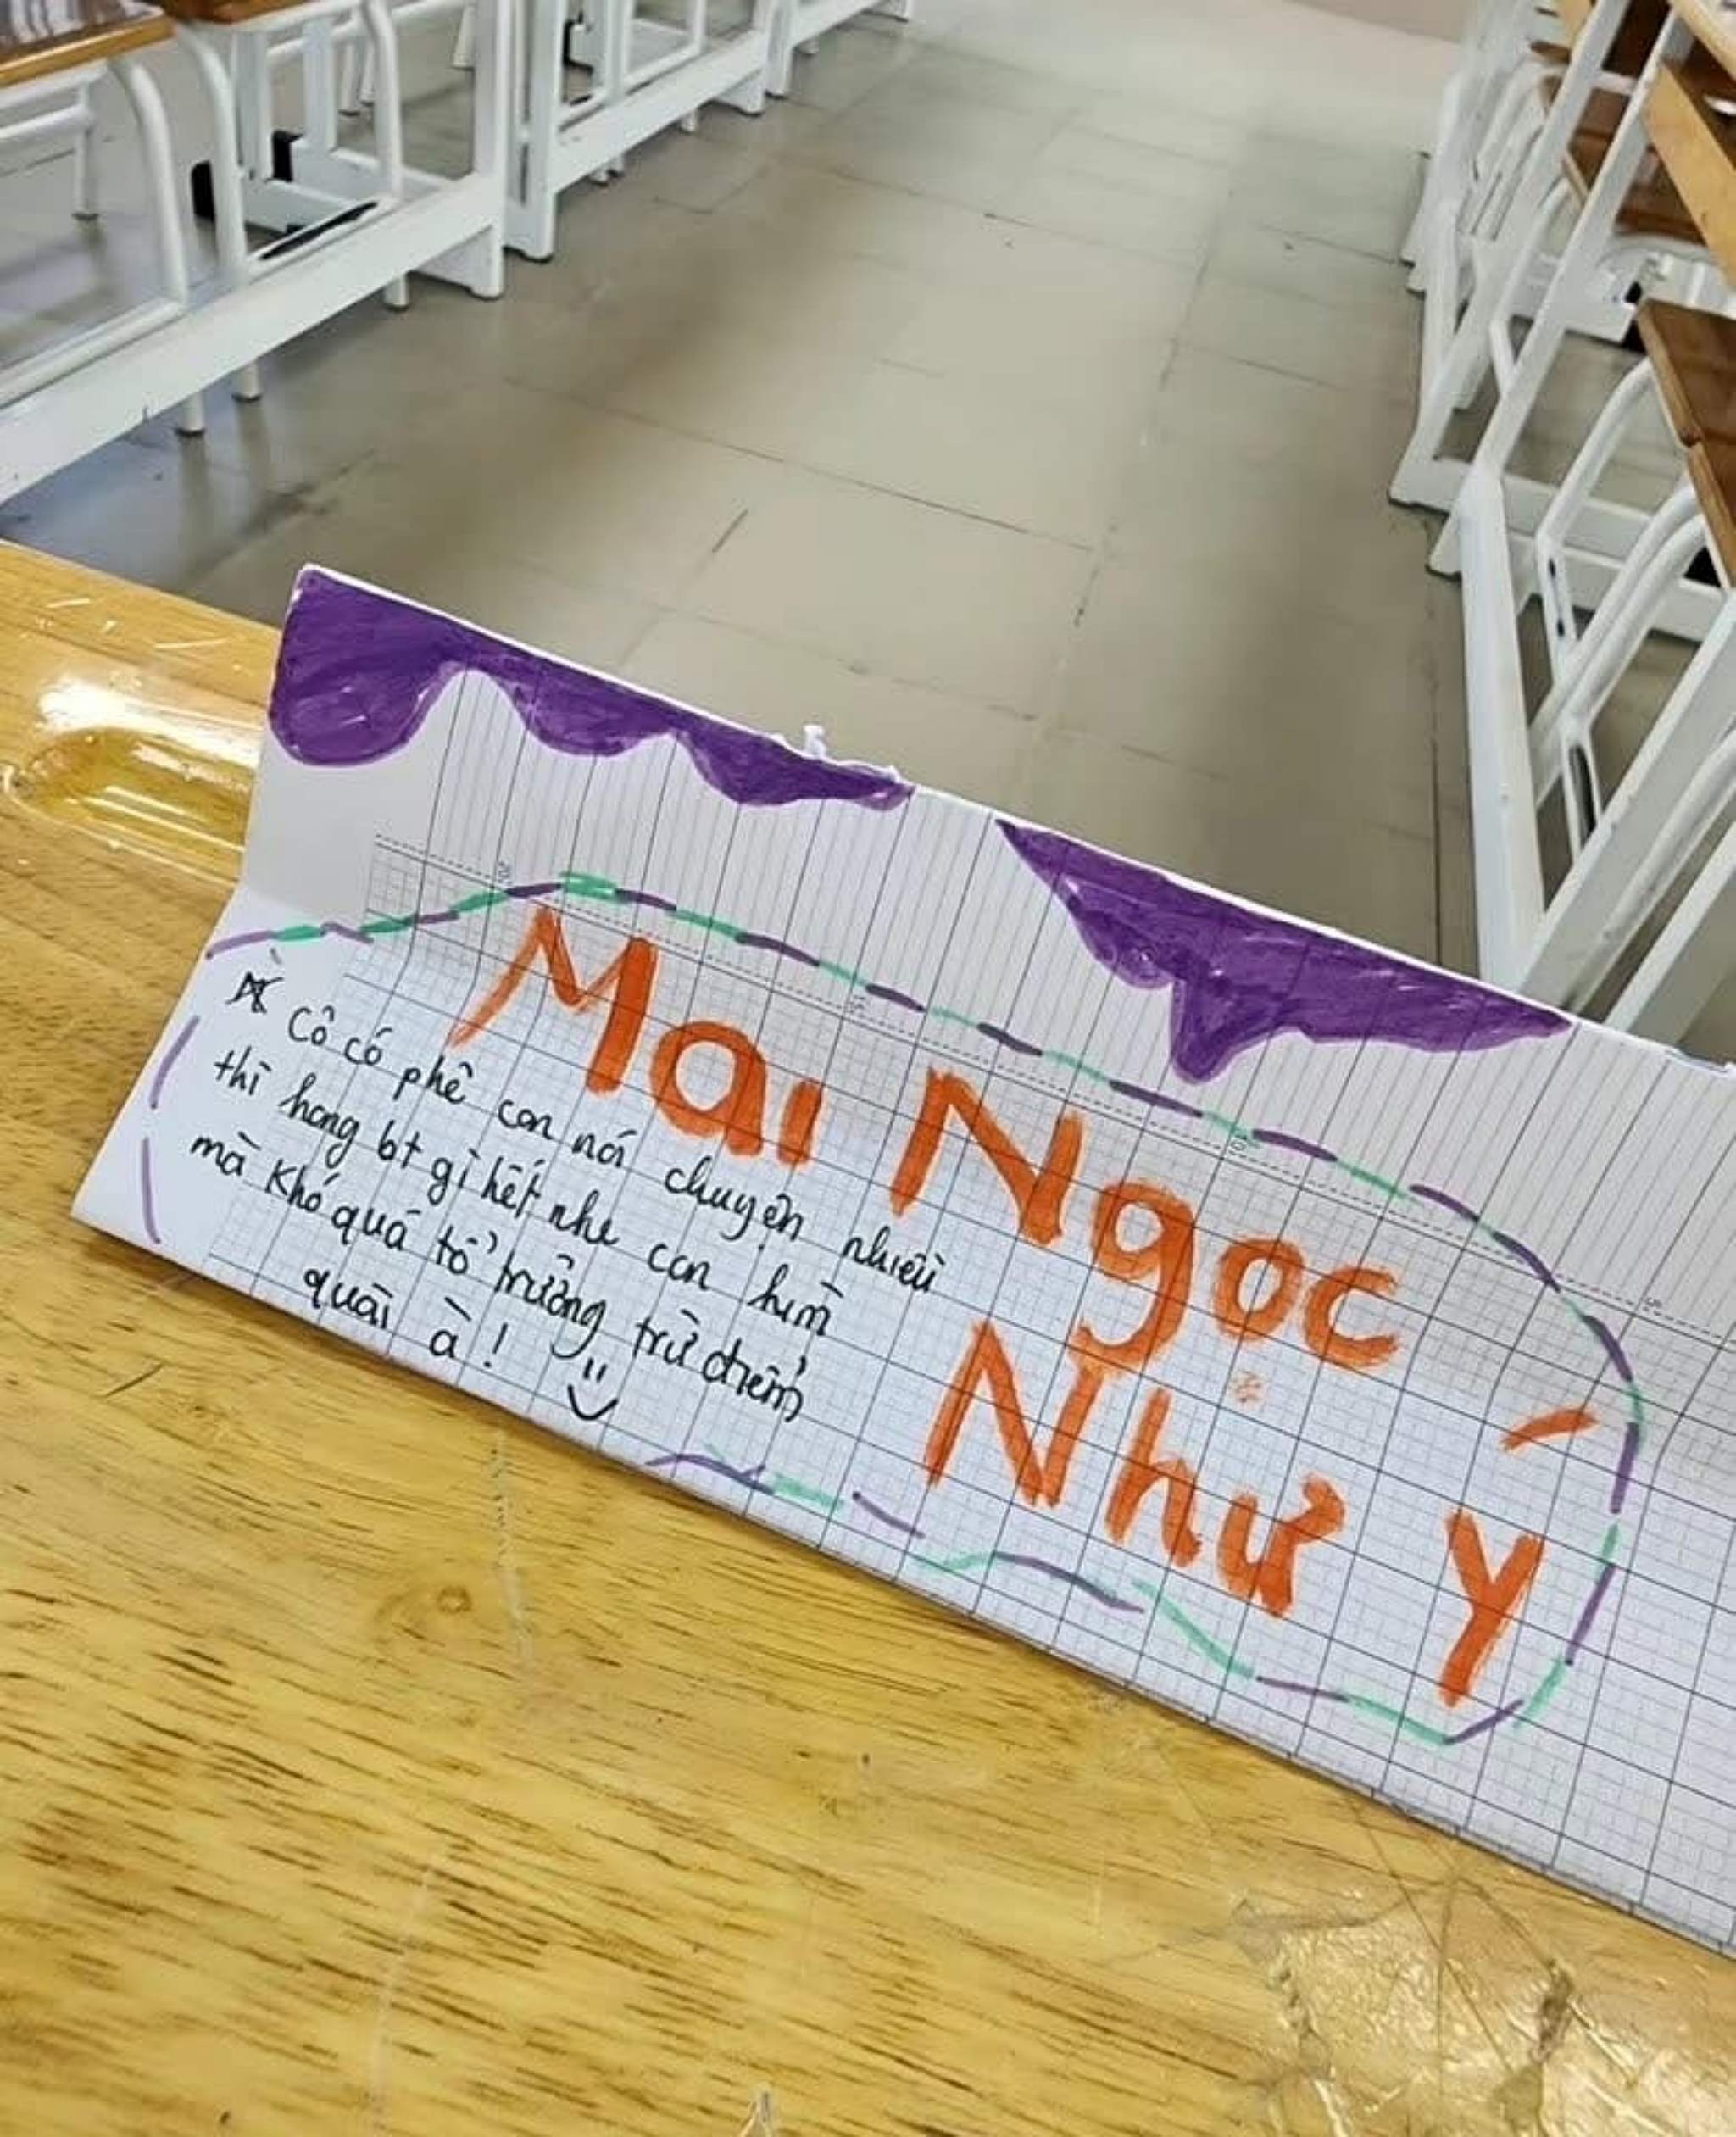 Mai Ngọc
Như Ý
Cô có phê con nói chuyện nhiều
thì hong bt gì hết nhe con hìn
mà khó quá tổ trưởng trừ điểm
quài à!